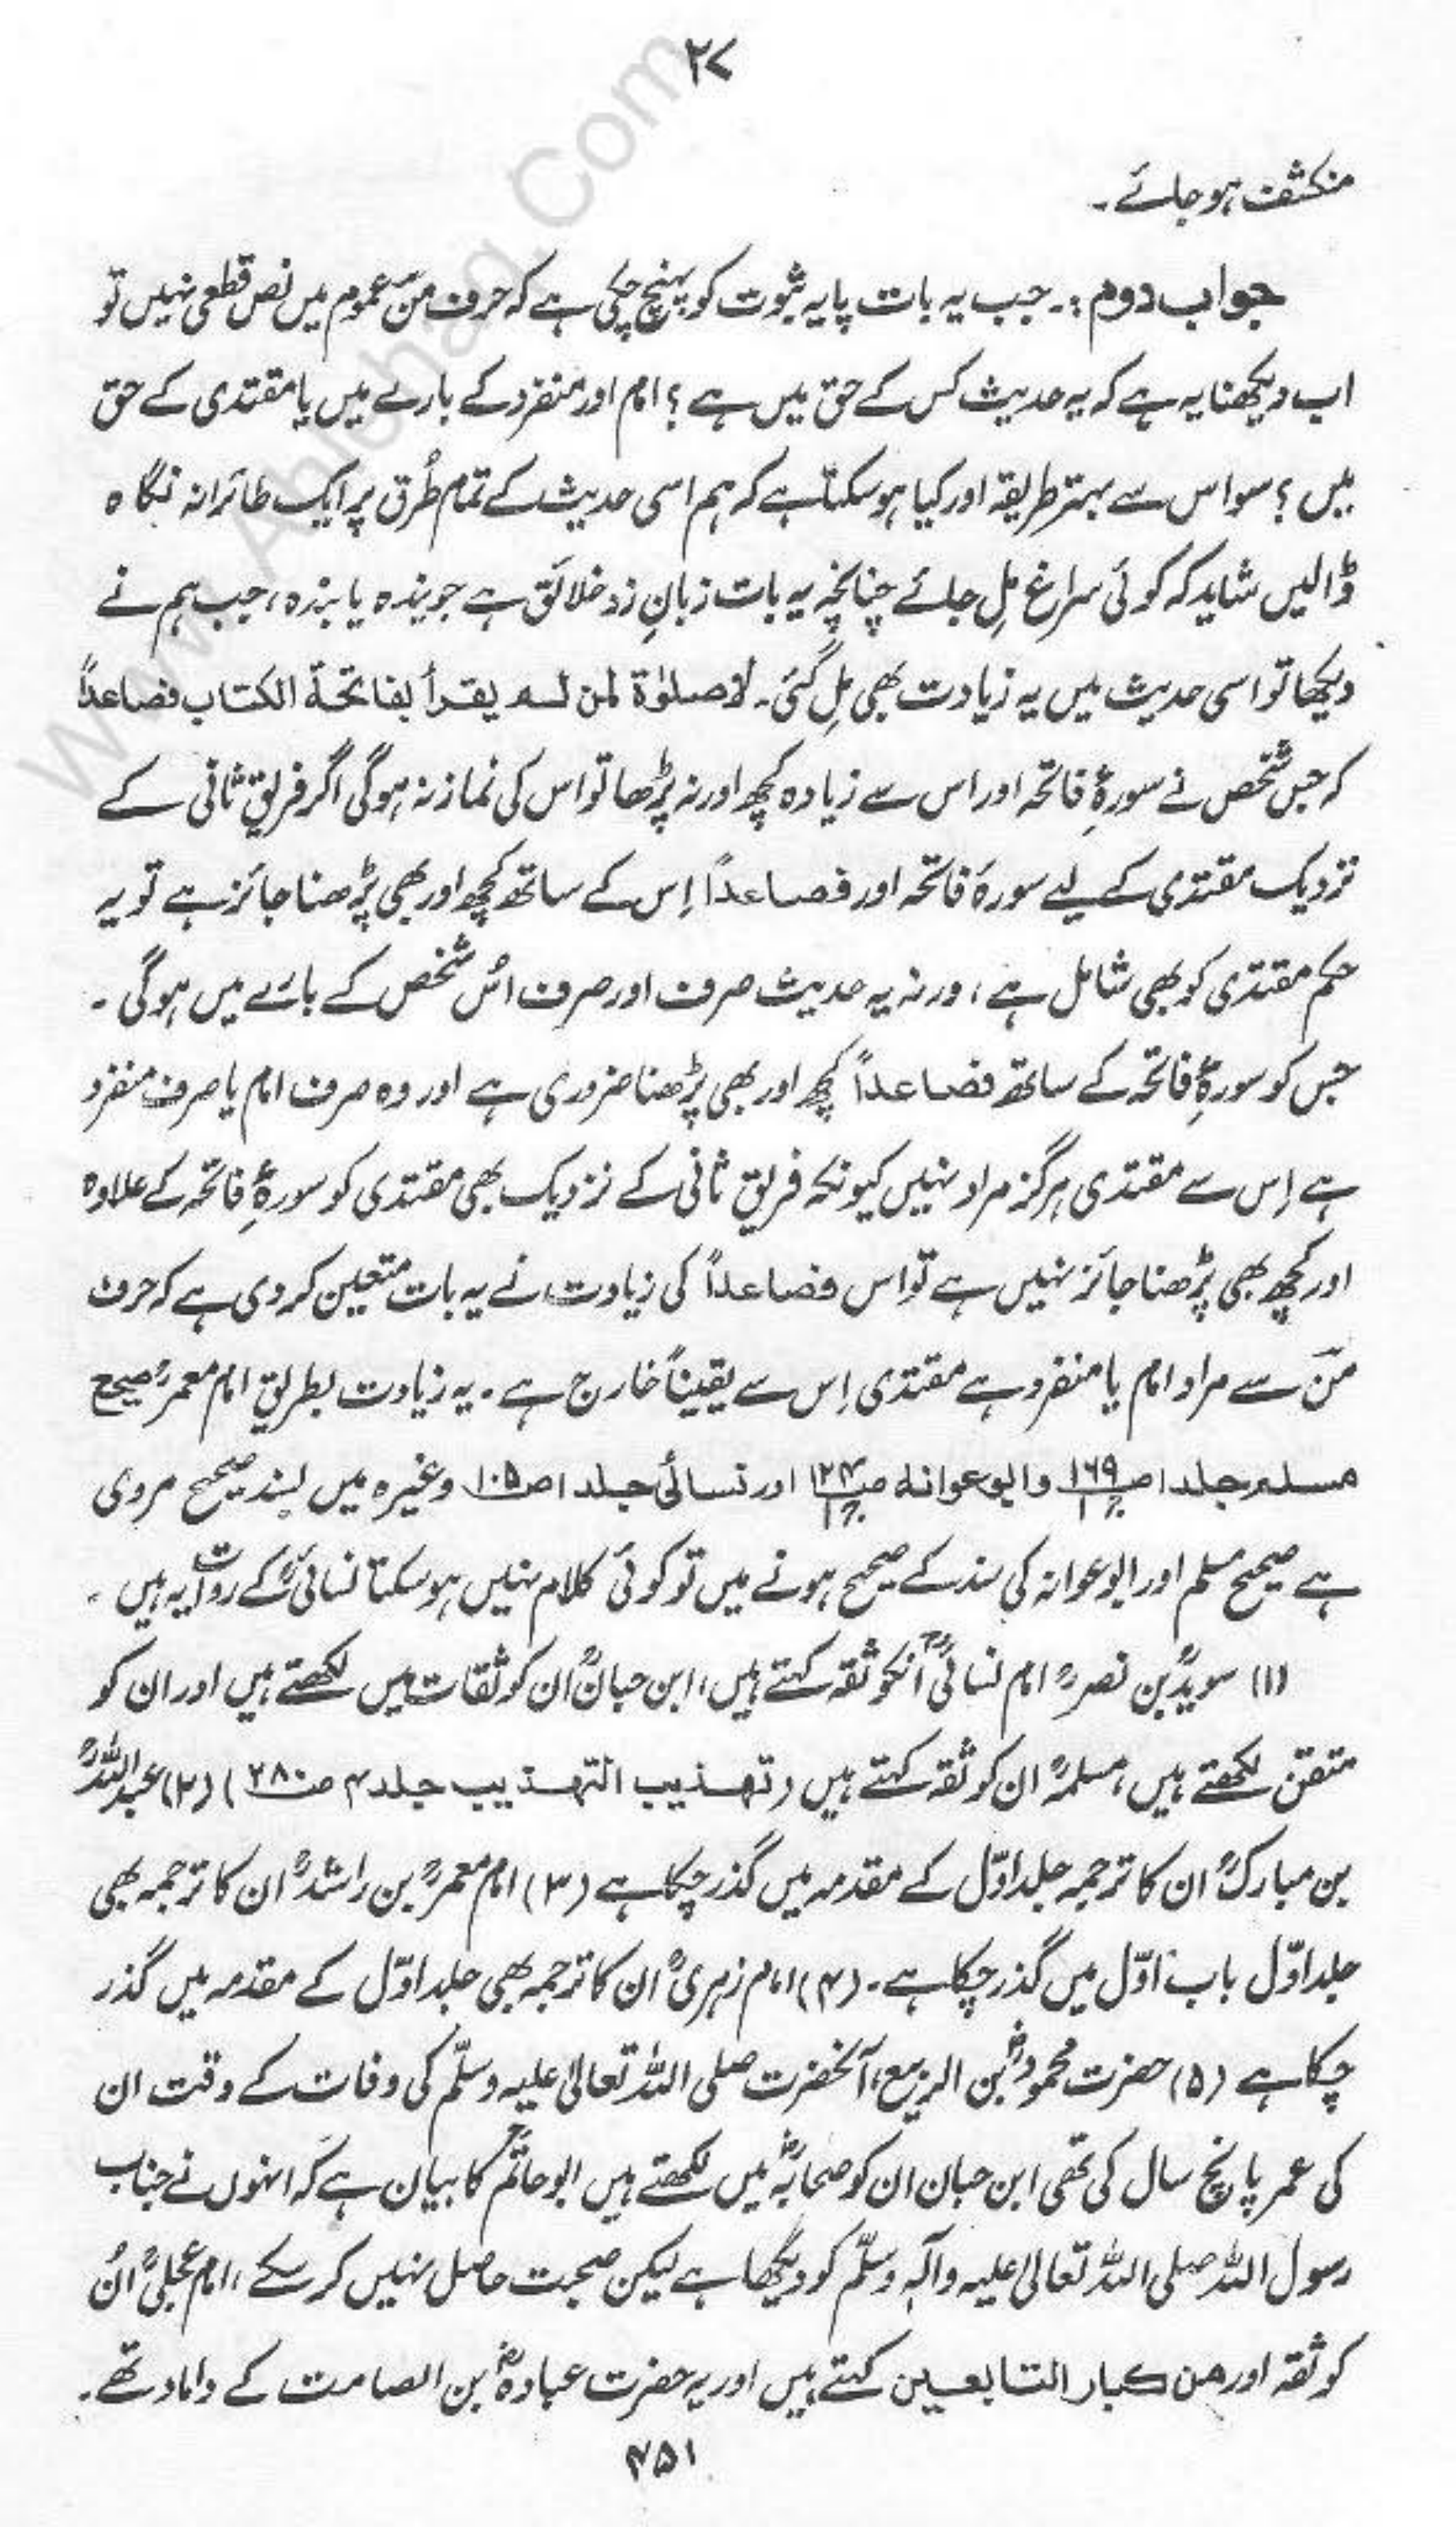 ۲۷
منکشف ہو جائے۔
جواب دوم :۔ جب یہ بات پایہ ثبوت کو پہنچ چکی ہے کہ حرف مَنْ عموم میں نص قطعی نہیں تو
اب دیکھنا یہ ہے کہ یہ حدیث کس کے حق میں ہے ؟ امام اور منفرد کے بارے میں یا مقتدی کے حق
میں ؟ سو اس سے بہتر طریقہ اور کیا ہو سکتا ہے کہ ہم اسی حدیث کے تمام طُرق پر ایک طائرانہ نگاہ
ڈالیں شاید کہ کوئی سراغ مِل جائے چنانچہ یہ بات زبانِ زد خلائق ہے جویندہ یابندہ ، جب ہم نے
دیکھا تو اسی حدیث میں یہ زیادت بھی مِل گئی۔ لا صلوٰۃ لمن لم یقرأ بفاتحۃ الکتاب فصاعدًا
کہ جس شخص نے سورۂ فاتحہ اور اس سے زیادہ کچھ اور نہ پڑھا تو اس کی نماز نہ ہوگی اگر فریق ثانی کے
نزدیک مقتدی کے لیے سورۂ فاتحہ اور فصاعدًا اِس کے ساتھ کچھ اور بھی پڑھنا جائز ہے تو یہ
حکم مقتدی کو بھی شامل ہے ، ورنہ یہ حدیث صرف اور صرف اُس شخص کے بارے میں ہوگی ۔
جس کو سورۂ فاتحہ کے ساتھ فصاعدًا کچھ اور بھی پڑھنا ضروری ہے اور وہ صرف امام یا صرف منفرد
ہے اِس سے مقتدی ہرگز مراد نہیں کیونکہ فریق ثانی کے نزدیک بھی مقتدی کو سورۂ فاتحہ کے علاوہ
اور کچھ بھی پڑھنا جائز نہیں ہے تو اس فصاعدًا کی زیادت نے یہ بات متعین کر دی ہے کہ حرف
مَنْ سے مراد امام یا منفرد ہے مقتدی اِس سے یقیناً خارج ہے ۔ یہ زیادت بطریق امام معمرؒ صحیح
مسلم جلد ۱ ص۱۶۹ وابوعوانہ ص۱۲۴ اور نسائی جلد ۱ ص۱۰۵ وغیرہ میں بسند صحیح مروی
ہے صحیح مسلم اور ابوعوانہ کی سند کے صحیح ہونے میں تو کوئی کلام نہیں ہو سکتا نسائیؒ کے روات یہ ہیں ۔
(۱) سویدؒ بن نصرؒ امام نسائیؒ انکو ثقہ کہتے ہیں ، ابن حبانؒ ان کو ثقات میں لکھتے ہیں اور ان کو
متقن لکھتے ہیں ، مسلمہؒ ان کو ثقہ کہتے ہیں (تہذیب التہذیب جلد ۴ ص۲۸۰) (۲) عبداللہؒ
بن مبارکؒ ان کا ترجمہ جلد اوّل کے مقدمہ میں گذر چکا ہے (۳) امام معمرؒ بن راشدؒ ان کا ترجمہ بھی
جلد اوّل باب اوّل میں گذر چکا ہے ۔ (۴) امام زہریؒ ان کا ترجمہ بھی جلد اوّل کے مقدمہ میں گذر
چکا ہے (۵) حضرت محمودؓ بن الربیع ، آنحضرت صلی اللہ تعالیٰ علیہ وسلّم کی وفات کے وقت ان
کی عمر پانچ سال کی تھی ابن حبان ان کو صحابہؓ میں لکھتے ہیں ابو حاتمؒ کا بیان ہے کہ انہوں نے جناب
رسول اللہ صلی اللہ تعالیٰ علیہ وآلہٖ وسلّم کو دیکھا ہے لیکن صحبت حاصل نہیں کر سکے ، امام عجلیؒ اُن
کو ثقہ اور من کبار التابعین کہتے ہیں اور یہ حضرت عبادہؓ بن الصامت کے داماد تھے ۔
۴۵۱
www.Ahlehaq.Com